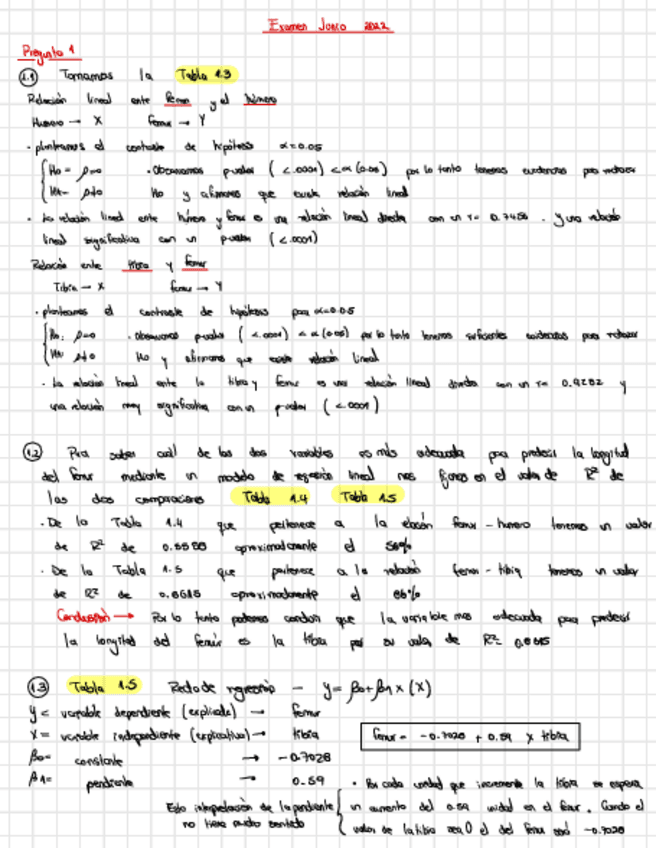 Examen Junio 2022
Pregunta 1
1.1 Tomamos la Tabla 1.3
Relación lineal ente Femur y el húmero
Humero → X Femur → Y
· planteamos el contraste de hipótesis α=0.05
Ho = ρ=0 · Observamos p-valor (<.0001) < α (0.05) por lo tanto tenemos evidencias para rechazar
H1= ρ≠0 Ho y afirmamos que existe relación lineal
· La relación lineal ente húmero y femur es una relación lineal directa con un r= 0.7456 . y una relación
lineal significativa con un p-valor (<.0001)
Relación ente tibia y femur
Tibia → X femur → Y
· planteamos el contraste de hipótesis para α=0.05
Ho: ρ=0 · observamos p-valor (<.0001) < α (0.05) por lo tanto tenemos suficientes evidencias para rechazar
H1: ρ≠0 Ho y afirmamos que existe relación lineal
· La relación lineal ente la tibia y femur es una relación lineal directa con un r= 0.9282 y
una relación muy significativa con un p-valor (<.0001)
1.2 Para saber cuál de las dos variables es más adecuada para predecir la longitud
del femur mediante un modelo de regresión lineal nos fijamos en el valor de R² de
las dos comparaciones Tabla 1.4 Tabla 1.5
· De la Tabla 1.4 que pertenece a la relación femur - humero tenemos un valor
de R² de aproximadamente el 56%
· De la Tabla 1.5 que pertenece a la relación femur - tibia tenemos un valor
de R² de 0.8615 aproximadamente el 86%
Conclusión → Por lo tanto podemos concluir que la variable mas adecuada para predecir
la longitud del femúr es la tibia por su valor de R²= 0.8615
1.3 Tabla 1.5 Recta de regresión - y= β0+β1 x (X)
y = variable dependiente (explicada) → femur
X= variable independiente (explicativa) → tibia
β0= constante → -0.7028
β1= pendiente → 0.89
femur = -0.7028 + 0.89 x tibia
· Por cada unidad que incremente la tibia se espera
Esta interpretación de la pendiente un aumento del 0.89 unidad en el femur. Cuando el
no tiene mucho sentido valor de la tibia sea 0 el del femur será -0.7028